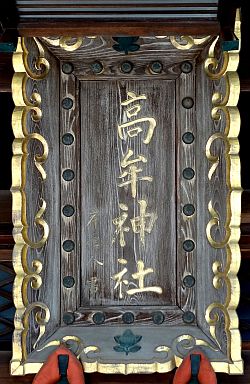 高牟神社